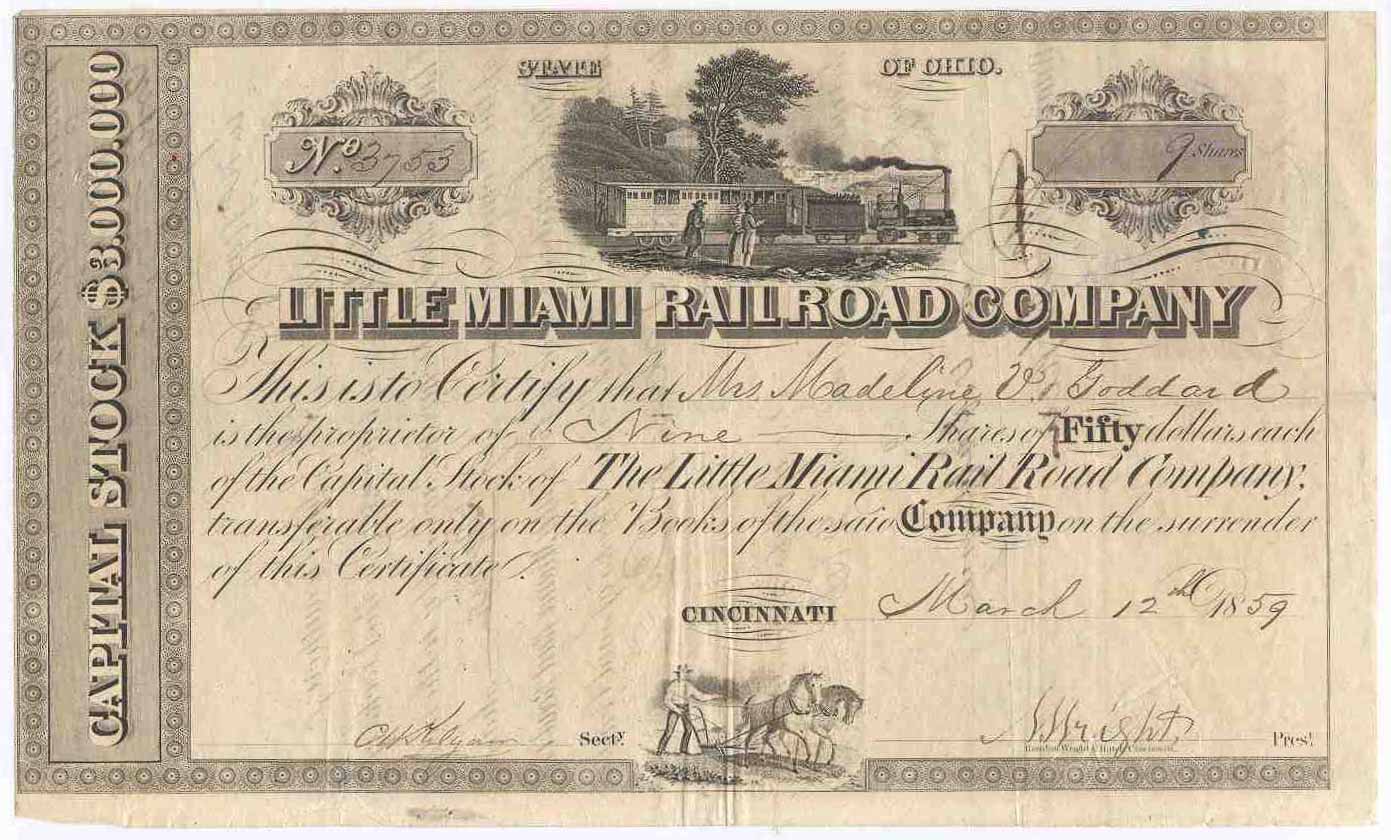 CAPITAL STOCK $3.000.000
STATE OF OHIO.
No. 3753
9 Shares
LITTLE MIAMI RAIL ROAD COMPANY
This is to Certify that Mrs. Madeline V. Goddard
is the proprietor of Nine Shares of Fifty dollars each
of the Capital Stock of The Little Miami Rail Road Company,
transferable only on the Books of the said Company on the surrender
of this Certificate.
CINCINNATI March 12th 1859
Secty.
Wright Prest.
Rawdon, Wright & Hatch, Cincinnati.